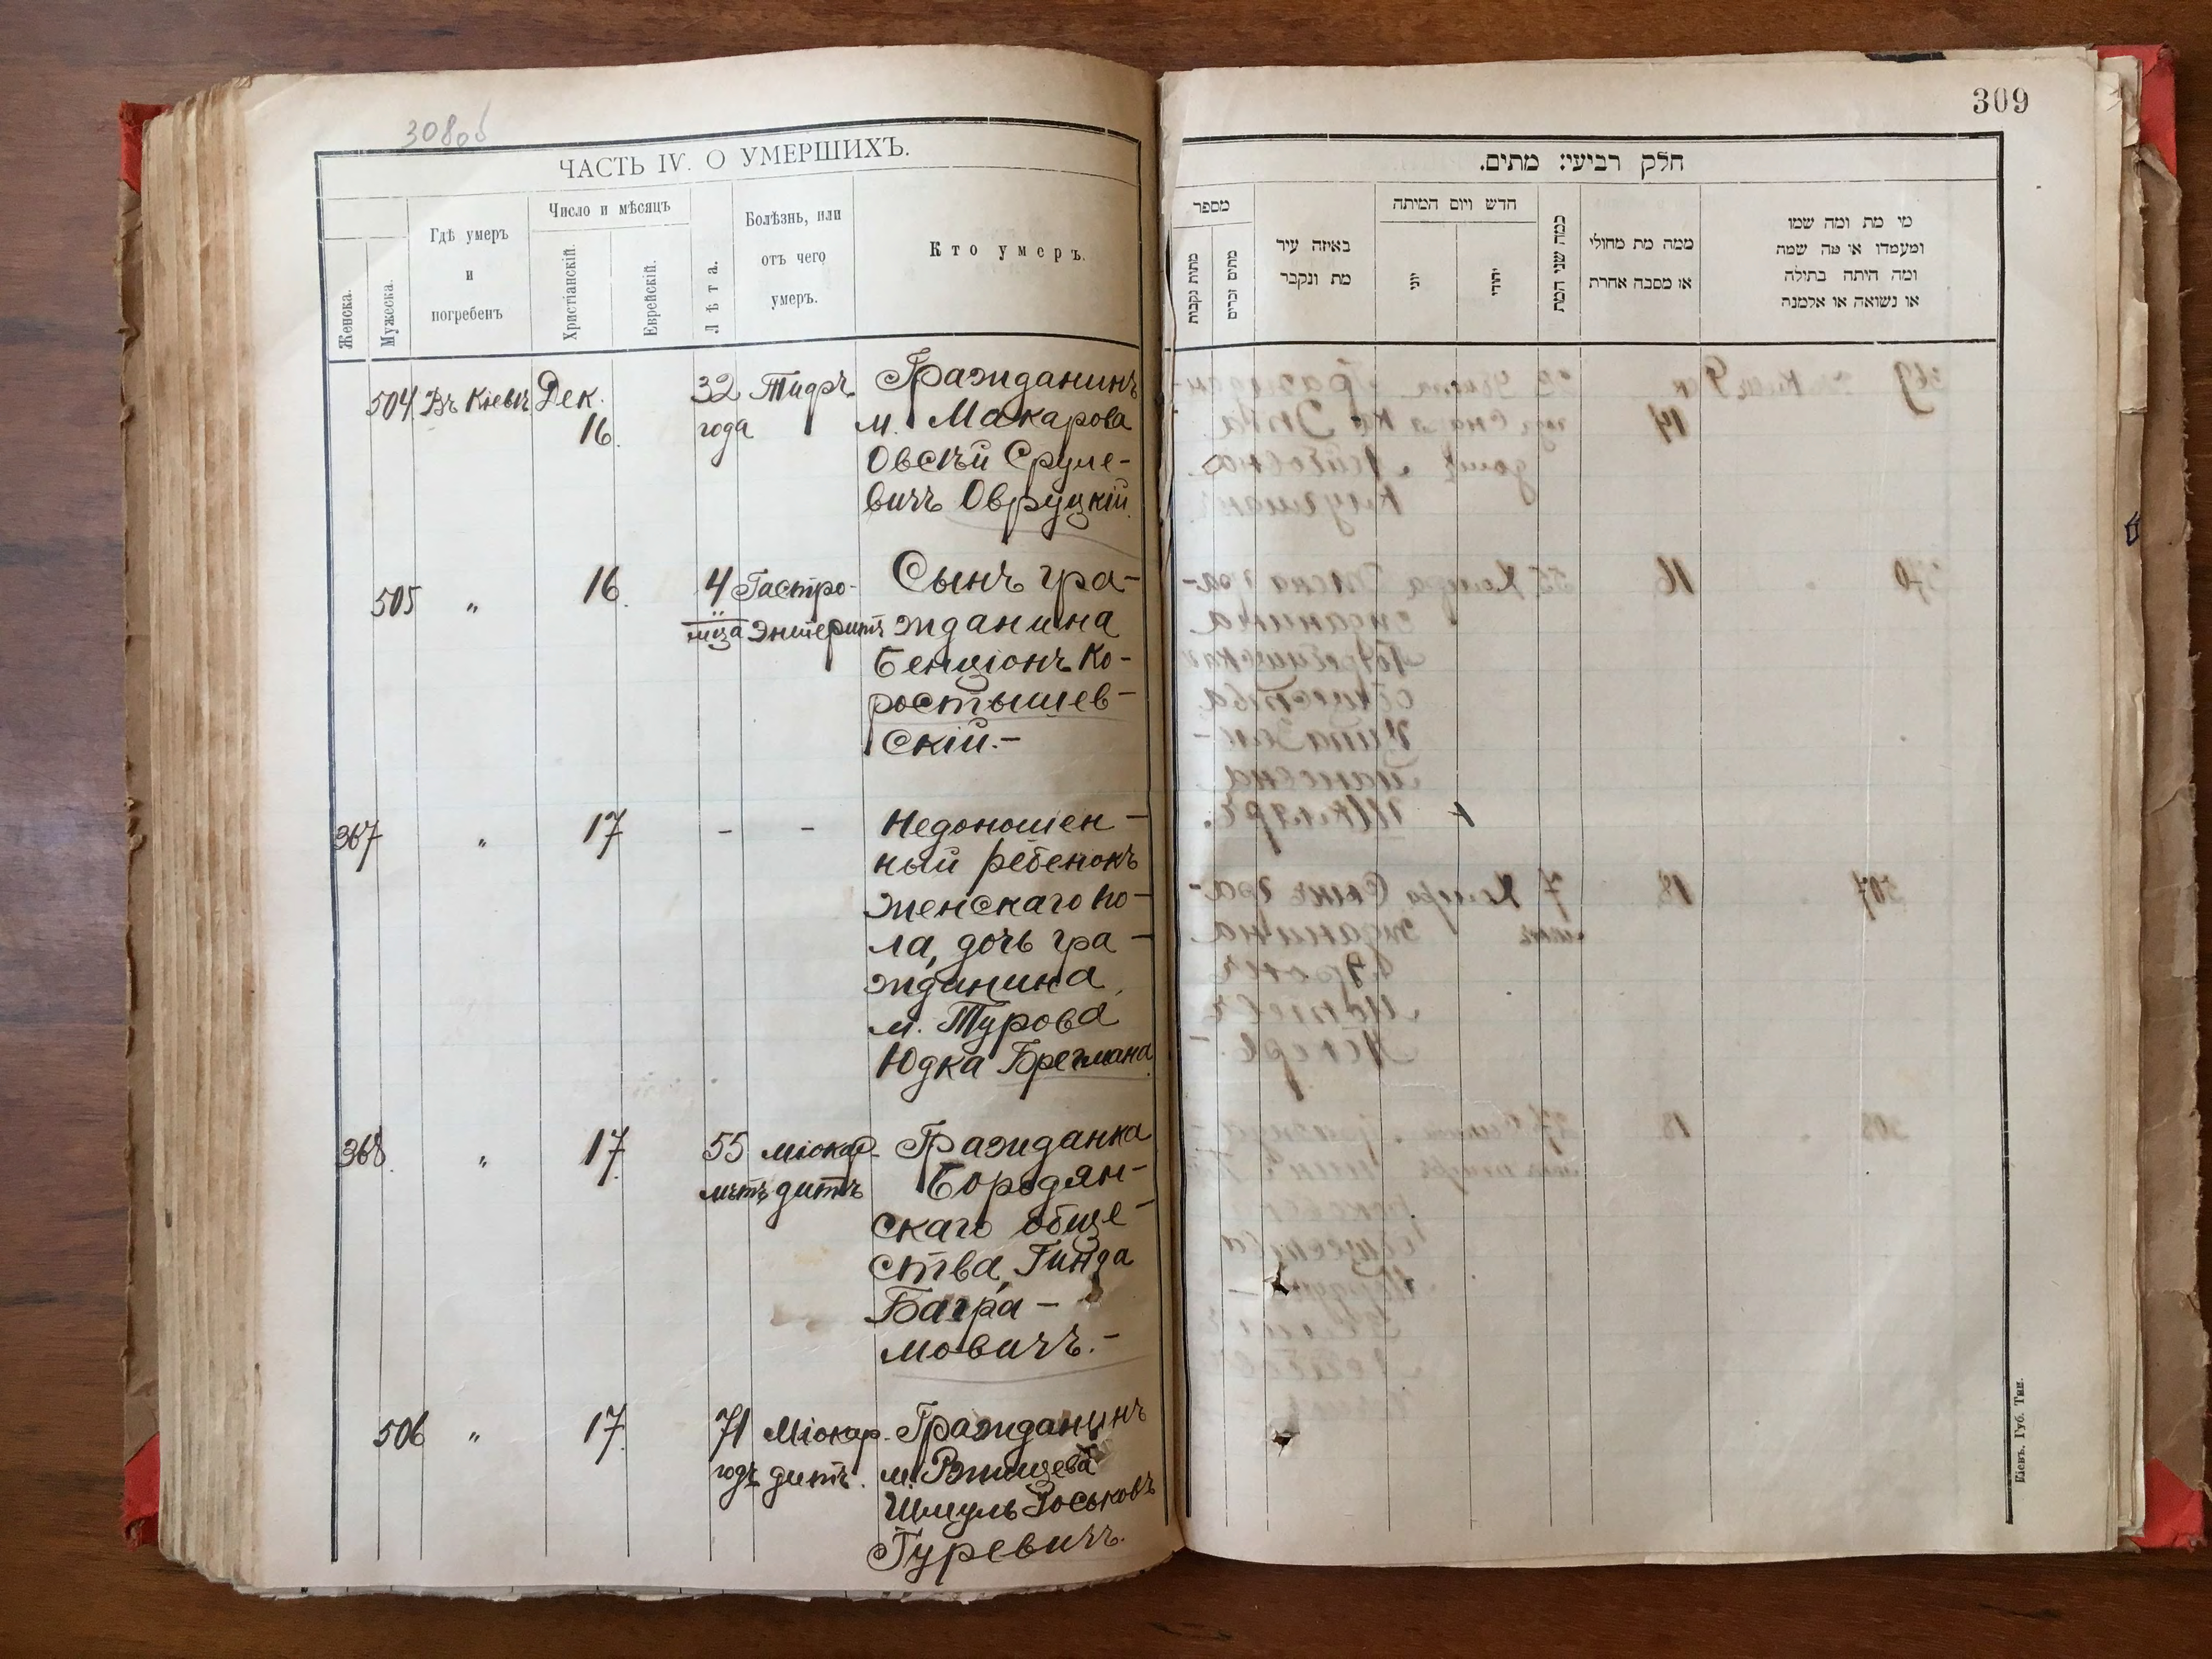 308об
ЧАСТЬ IV. О УМЕРШИХЪ.
Женска.
Мужеска.
Гдѣ умеръ
и
погребенъ
Число и мѣсяцъ
Христіанскій.
Еврейскій.
Лѣта.
Болѣзнь, или
отъ чего
умеръ.
Кто умеръ.
504 Въ Кіевѣ Дек. 32 Тифъ Гражданинъ
16. года м. Макарова
Овсѣй Сруле-
вичъ Овруцкій
505 " 16. 4 Гастро- Сынъ гра-
м-ца энтеритъ жданина
Бенціонъ Ко-
ростышев-
скій.-
367 " 17 - - Недоношен-
ный ребенокъ
женскаго по-
ла, дочь гра-
жданина
м. Турова
Юдка Брегмана.
368 " 17. 55 міокар- Гражданка
лѣтъ дитъ Бородян-
скаго обще-
ства, Гинда
Багра-
мовичъ.-
506 " 17. 71 Міокар- Гражданинъ
годъ дитъ. м. Ржищева
Шмуль Іоськовъ
Гуревичъ.
309
חלק רביעי: מתים.
מספר
מתות נקבות
מתים זכרים
באיזה עיר
מת ונקבר
חדש ויום המיתה
יוני
יהודי
כמה שני המת
ממה מת מחולי
או מסבה אחרת
מי מת ומה שמו
ומעמדו או מה שמה
ומה היתה בתולה
או נשואה או אלמנה
Кіевъ. Губ. Тип.